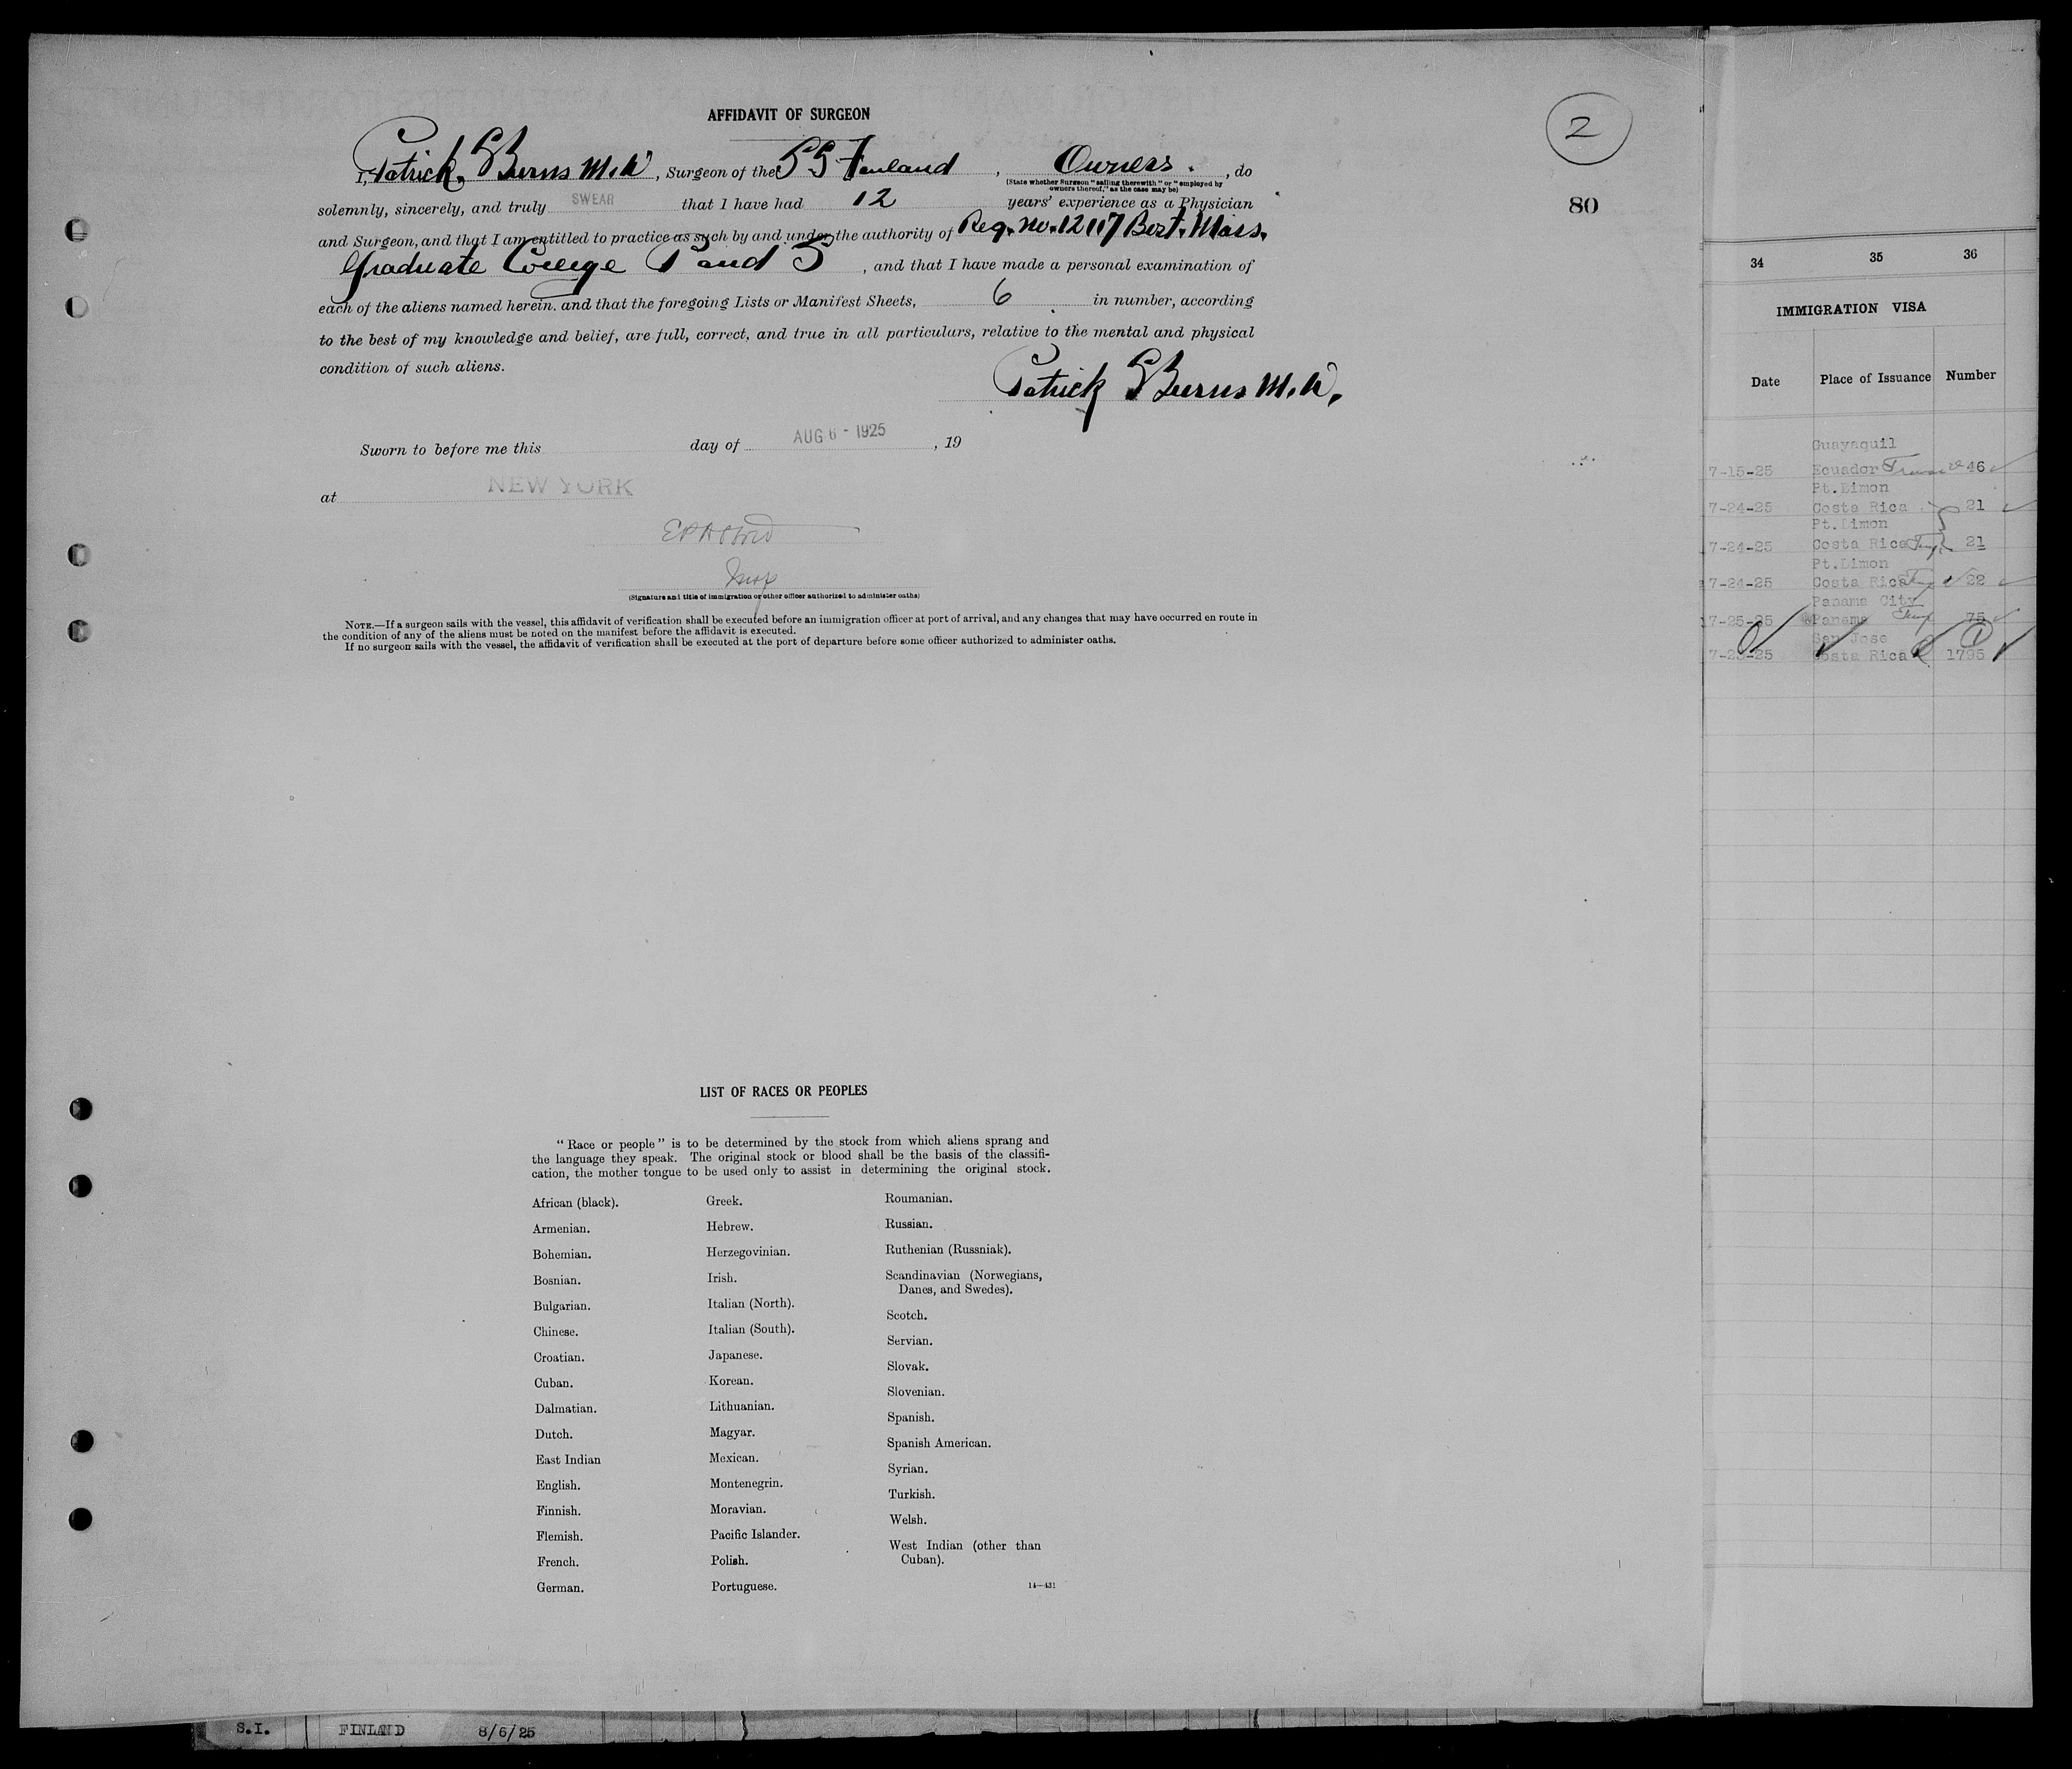 AFFIDAVIT OF SURGEON
2
I, Patrick S Burns M.D, Surgeon of the SS Finland, Owners., do
(State whether Surgeon "sailing therewith" or "employed by
owners thereof," as the case may be)
solemnly, sincerely, and truly SWEAR that I have had 12 years' experience as a Physician
80
and Surgeon, and that I am entitled to practice as such by and under the authority of Reg. No. 12117 Bost. Mass.
Graduate College P and S, and that I have made a personal examination of
each of the aliens named herein. and that the foregoing Lists or Manifest Sheets, 6 in number, according
to the best of my knowledge and belief, are full, correct, and true in all particulars, relative to the mental and physical
condition of such aliens.
Patrick S Burns M.D.
Sworn to before me this day of AUG 6 - 1925, 19
at NEW YORK
Insp
(Signature and title of immigration or other officer authorized to administer oaths)
NOTE.—If a surgeon sails with the vessel, this affidavit of verification shall be executed before an immigration officer at port of arrival, and any changes that may have occurred en route in
the condition of any of the aliens must be noted on the manifest before the affidavit is executed.
If no surgeon sails with the vessel, the affidavit of verification shall be executed at the port of departure before some officer authorized to administer oaths.
LIST OF RACES OR PEOPLES
"Race or people" is to be determined by the stock from which aliens sprang and
the language they speak. The original stock or blood shall be the basis of the classifi-
cation, the mother tongue to be used only to assist in determining the original stock.
African (black).
Armenian.
Bohemian.
Bosnian.
Bulgarian.
Chinese.
Croatian.
Cuban.
Dalmatian.
Dutch.
East Indian
English.
Finnish.
Flemish.
French.
German.
Greek.
Hebrew.
Herzegovinian.
Irish.
Italian (North).
Italian (South).
Japanese.
Korean.
Lithuanian.
Magyar.
Mexican.
Montenegrin.
Moravian.
Pacific Islander.
Polish.
Portuguese.
Roumanian.
Russian.
Ruthenian (Russniak).
Scandinavian (Norwegians,
Danes, and Swedes).
Scotch.
Servian.
Slovak.
Slovenian.
Spanish.
Spanish American.
Syrian.
Turkish.
Welsh.
West Indian (other than
Cuban).
14—431
34 35 36
IMMIGRATION VISA
Date Place of Issuance Number
Guayaquil
7-15-25 Ecuador 46
Pt. Limon
7-24-25 Costa Rica 21
Pt. Limon
7-24-25 Costa Rica Temp 21
Pt. Limon
7-24-25 Costa Rica Temp 22
Panama City
7-25-25 Panama Temp 75
San Jose 1
7-23-25 Costa Rica 1795
S.I. FINLAND 8/6/25